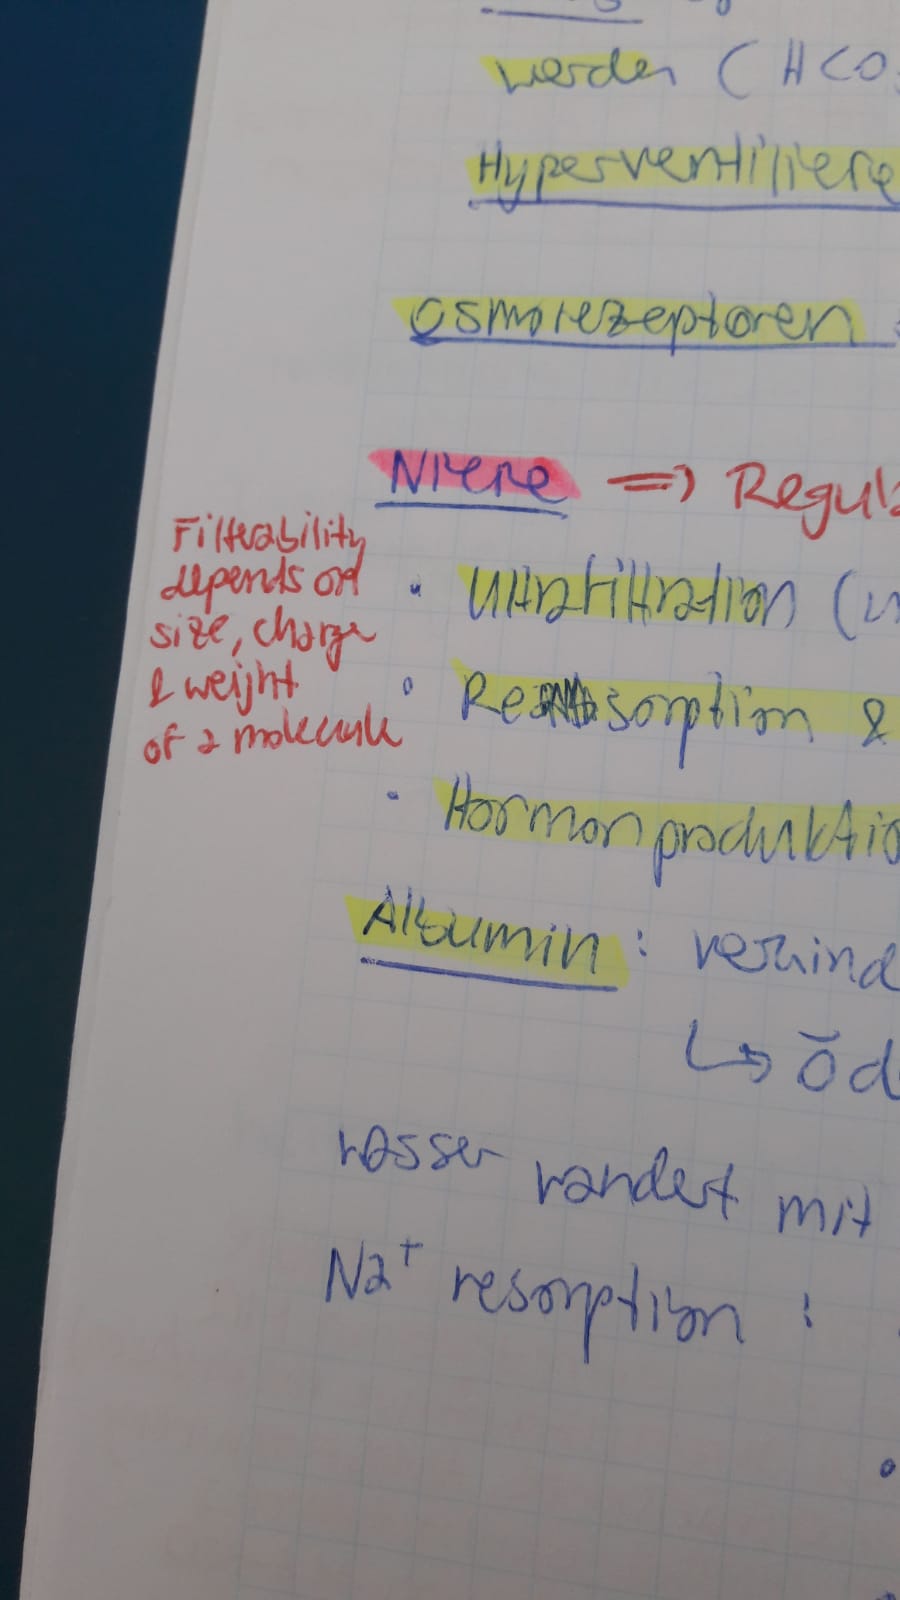 werden (HCO
Hyperventiliere
Osmorezeptoren :
Niere => Regula
Filterability
depends on
size, charge
& weight
of a molecule
• Ultrafiltration (
• Resorption &
• Hormonproduktio
Albumin : verhind
↳ Öd
wasser wandert mit
Na⁺ resorption :